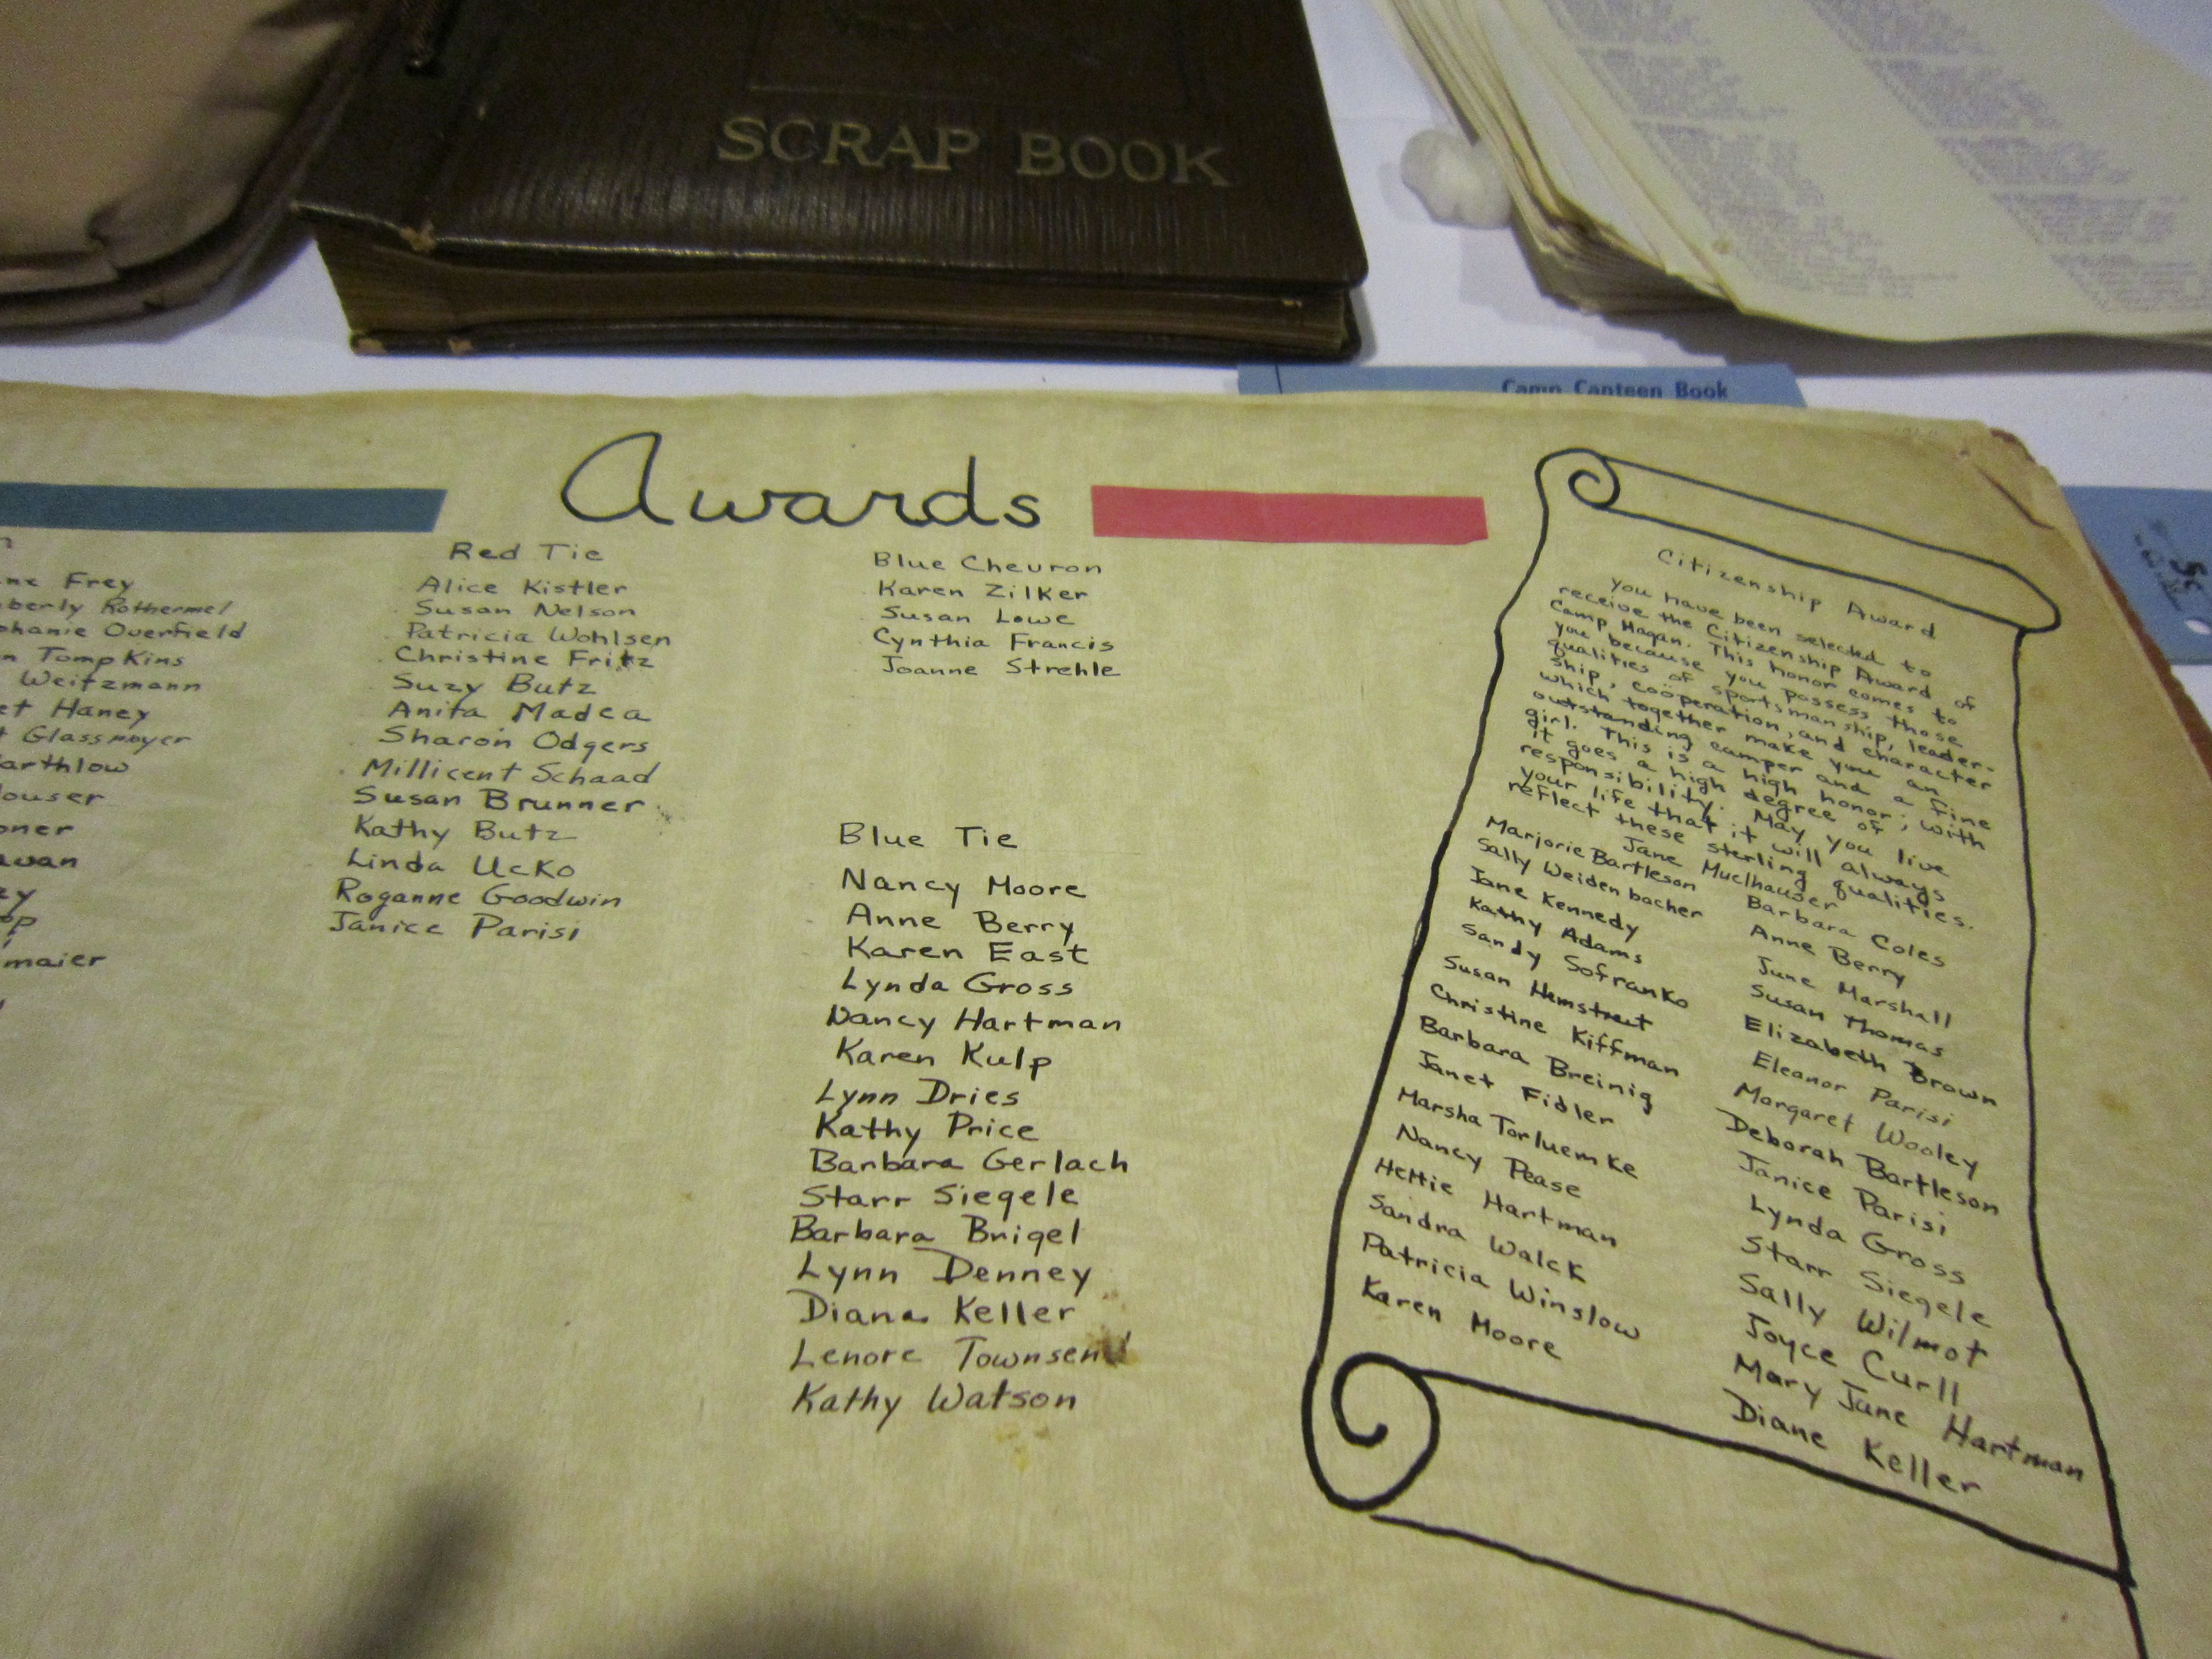 SCRAP BOOK
Camp Canteen Book
Awards
Frey
Rothermel
Overfield
Tompkins
Weitzmann
Haney
Glassmoyer
Red Tie
Alice Kistler
Susan Nelson
Patricia Wohlsen
Christine Fritz
Suzy Butz
Anita Madea
Sharon Odgers
Millicent Schaad
Susan Brunner
Kathy Butz
Linda Ucko
Roganne Goodwin
Janice Parisi
Blue Chevron
Karen Zilker
Susan Lowe
Cynthia Francis
Joanne Strehle
Blue Tie
Nancy Moore
Anne Berry
Karen East
Lynda Gross
Nancy Hartman
Karen Kulp
Lynn Dries
Kathy Price
Barbara Gerlach
Starr Siegele
Barbara Brigel
Lynn Denney
Diana Keller
Lenore Townsend
Kathy Watson
Citizenship Award
You have been selected to
receive the Citizenship Award of
Camp Hagan. This honor comes to
you because you possess those
qualities of sportsmanship, leader-
ship, coöperation, and character
which together make you an
outstanding camper and a fine
girl. This is a high honor; with
it goes a high degree of
responsibility. May you live
your life that it will always
reflect these sterling qualities.
Jane Muelhauser
Marjorie Bartleson
Sally Weidenbacher
Jane Kennedy
Kathy Adams
Sandy Sofranko
Susan Hemstreet
Christine Kiffman
Barbara Breinig
Janet Fidler
Marsha Torluemke
Nancy Pease
Hettie Hartman
Sandra Walck
Patricia Winslow
Karen Moore
Barbara Coles
Anne Berry
June Marshall
Susan Thomas
Elizabeth Brown
Eleanor Parisi
Margaret Wooley
Deborah Bartleson
Janice Parisi
Lynda Gross
Starr Siegele
Sally Wilmot
Joyce Curll
Mary Jane Hartman
Diane Keller